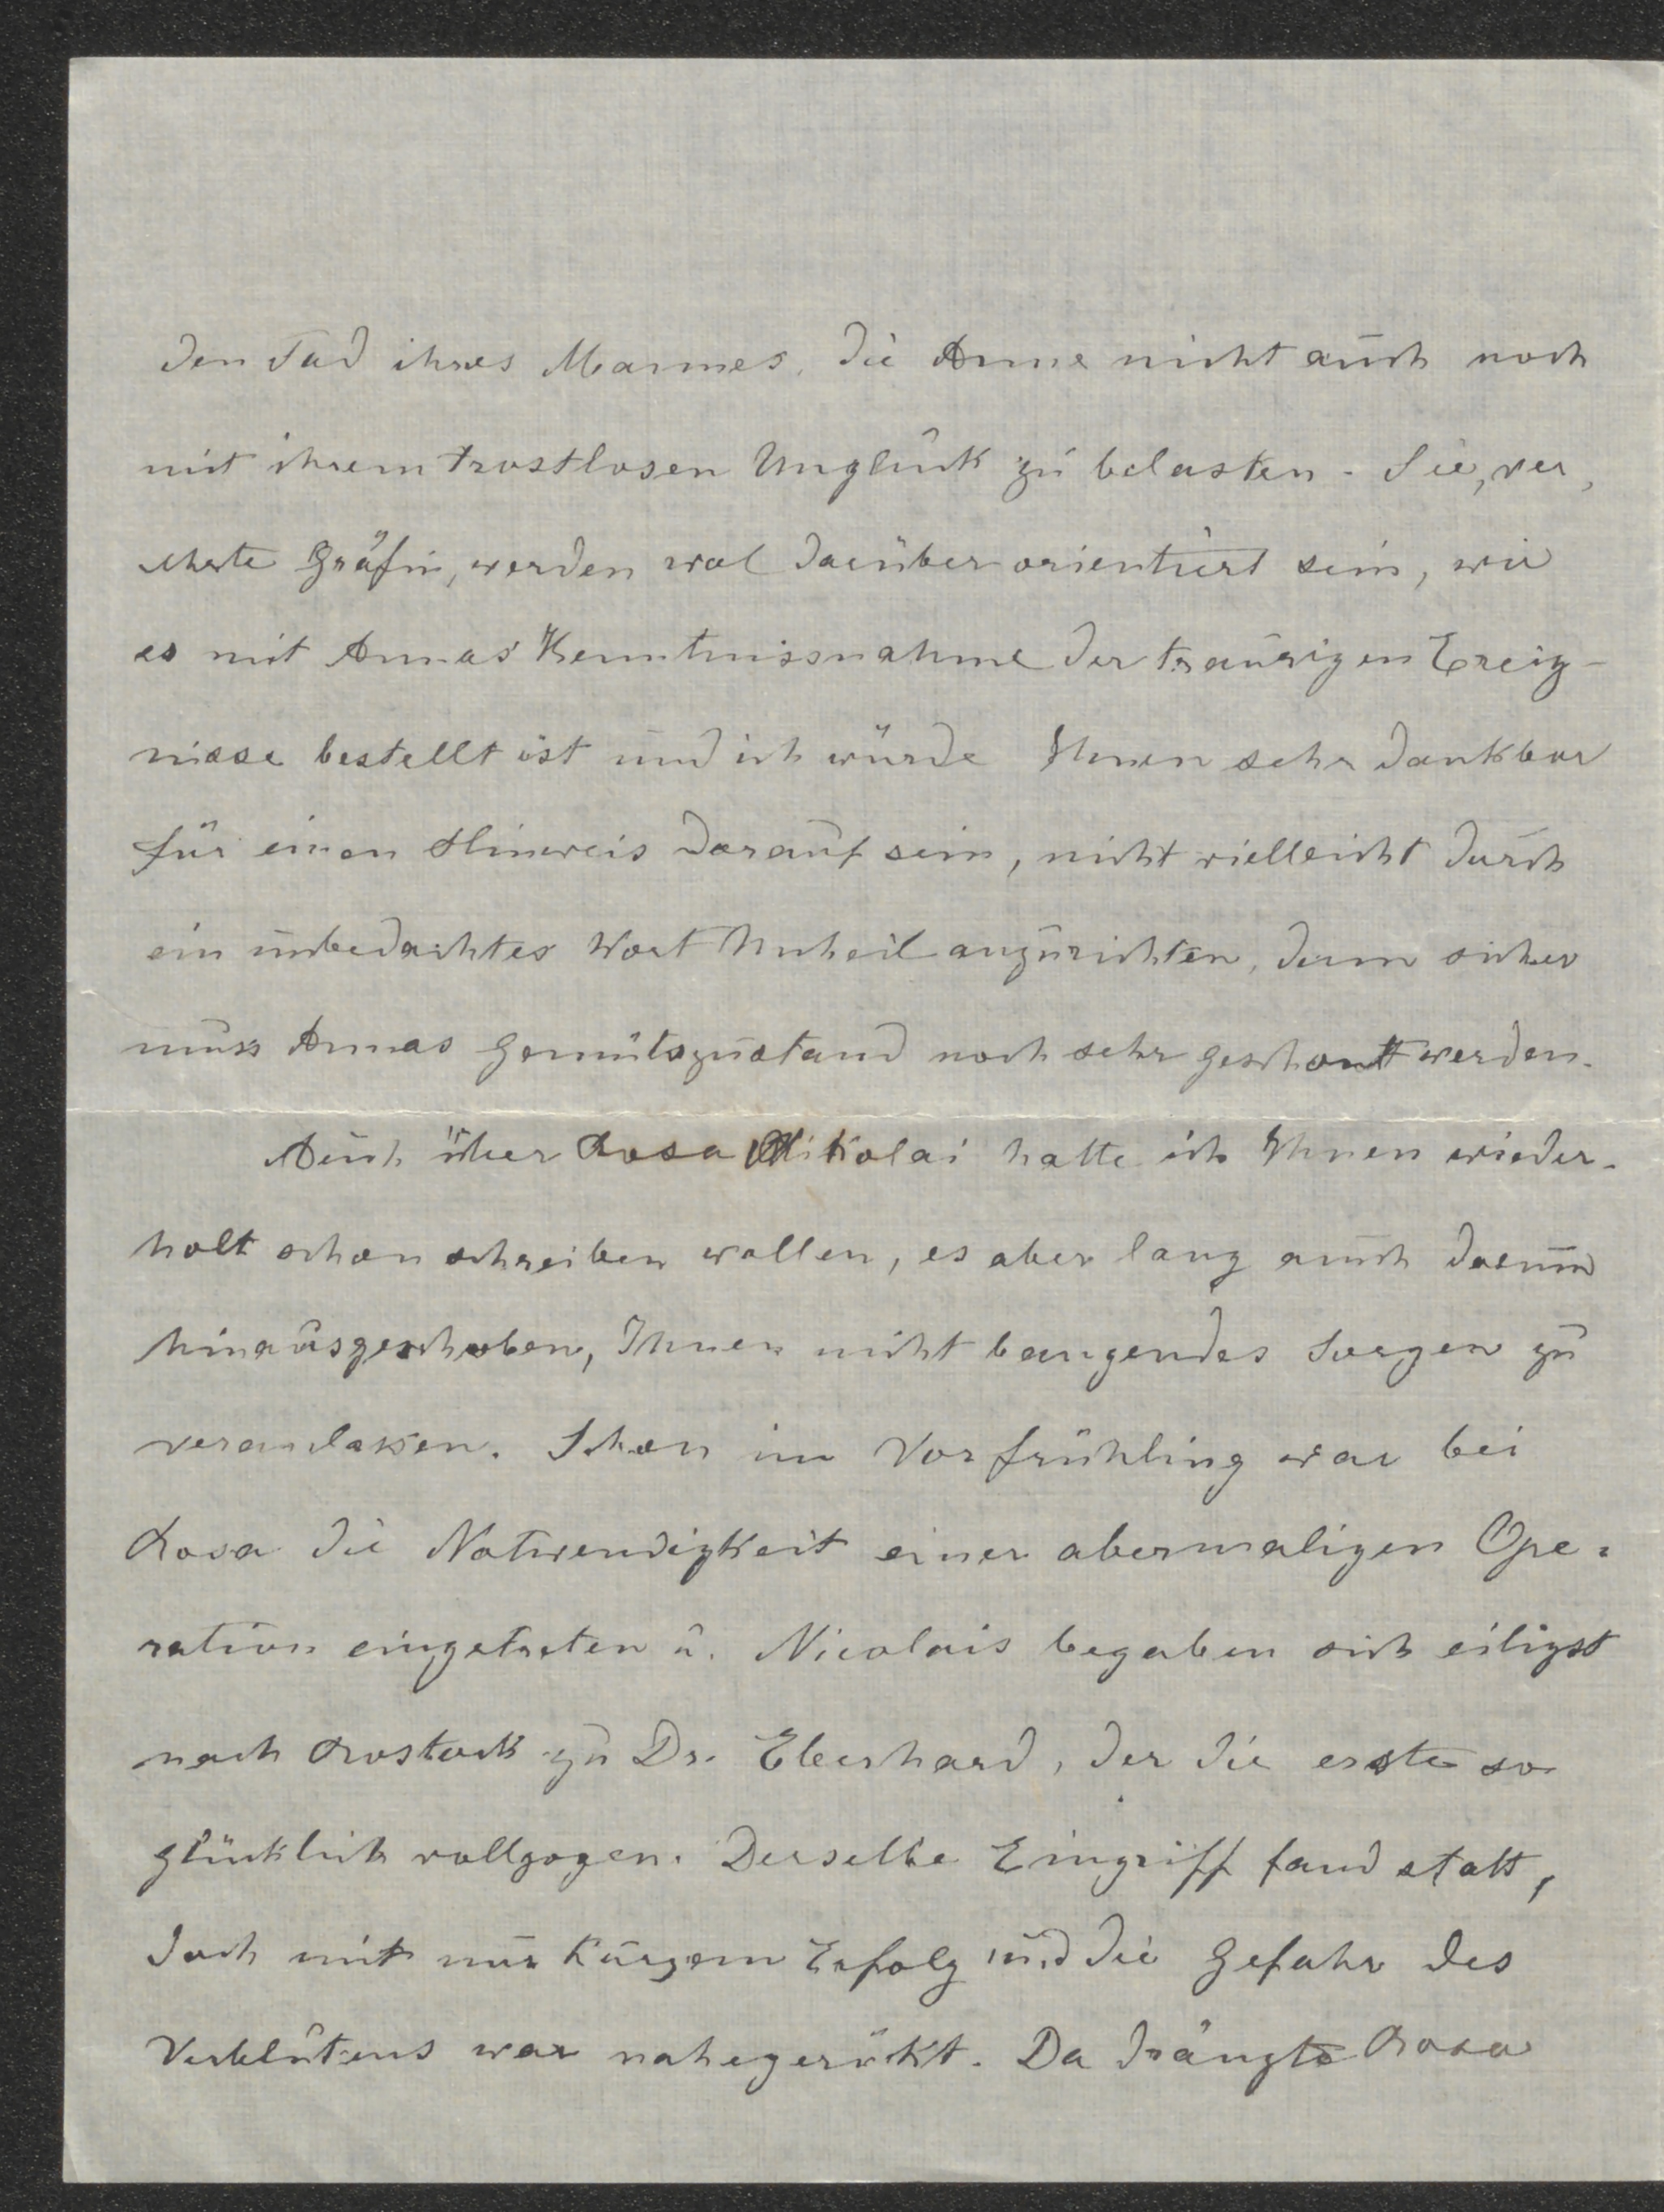 den Tod ihres Mannes, die Arme nicht auch noch
mit ihrem trostlosen Unglück zu belasten. Sie, ver-
ehrte Gräfin, werden wol darüber orientiert sein, wie
es mit Annas Kenntnissnahme der traurigen Ereig-
nisse bestellt ist und ich würde Ihnen sehr dankbar
für einen Hinweis darauf sein, nicht vielleicht durch
ein unbedachtes Wort Unheil anzurichten, denn sicher
muss Annas Gemütszustand noch sehr geschont werden.
Auch über Rosa Nikolai hatte ich Ihnen wieder-
holt schon schreiben wollen, es aber lang auch darum
hinausgeschoben, Ihnen nicht bangendes Sorgen zu
veranlassen. Schon im Vorfrühling war bei
Rosa die Notwendigkeit einer abermaligen Ope-
ration eingetreten u. Nicolais begaben sich eiligst
nach Rostock zu Dr. Eberhard, der die erste so
glücklich vollzogen. Derselbe Eingriff fand statt,
doch mit nur kurzem Erfolg und die Gefahr des
Verblutens war nahegerückt. Da drängte Rosa